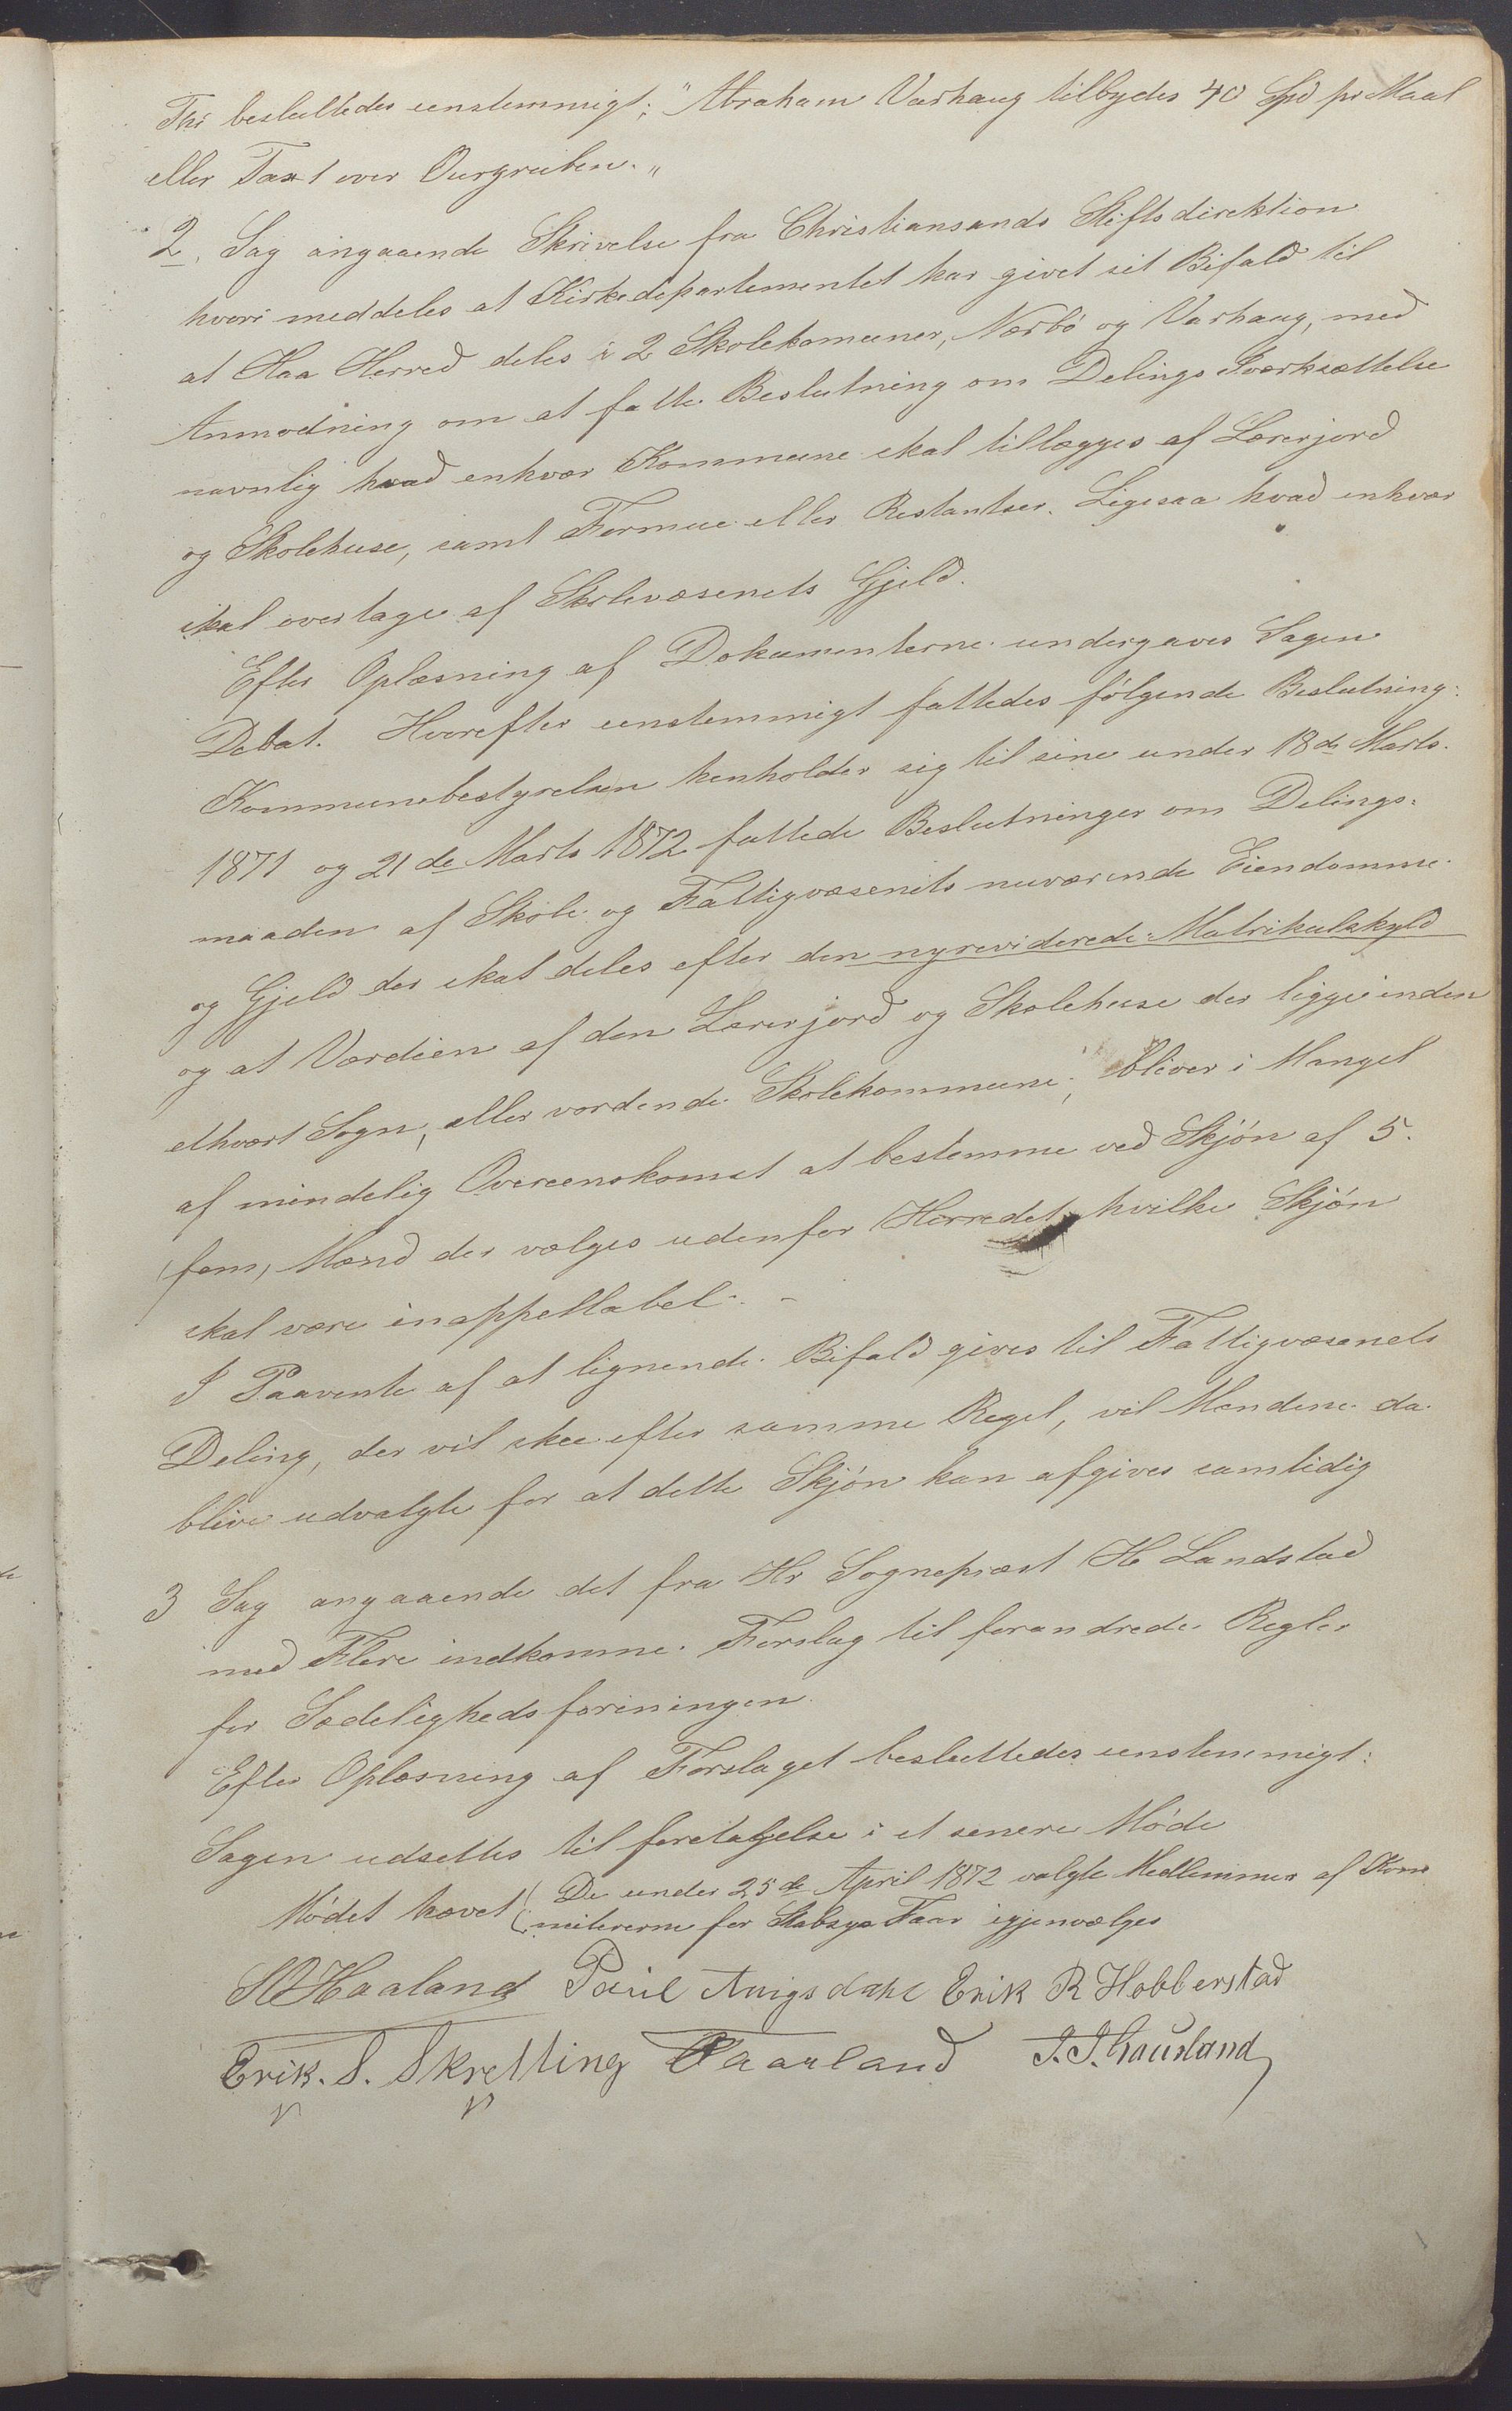 Thi besluttedes eenstemmigt: "Abraham Varhaug tilbydes 40 Spd pr Maal
eller Taxt over Ourgruben."
2. Sag angaaende Skrivelse fra Christiansands Stiftsdirektion
hvori meddeles at Kirkedepartementet har givet sit Bifald til
at Haa Herred deles i 2 Skolekomuner, Nærbö og Varhaug, med
Anmodning om at fatte Beslutning om Delings Iværksættelse
navnlig hvad enhvær Kommune skal tillægges af Lærerjord
og Skolehuse, samt Formue eller Restantser. Ligesaa hvad enhvær
skal overtage af Skolevæsenets Gjeld.
Efter Oplæsning af Dokumenterne undergaves Sagen
Debat. Hvorefter eenstemmigt fattedes fölgende Beslutning:
Kommunebestyrelsen henholder sig til sine under 18de Marts
1871 og 21de Marts 1872 fattede Beslutninger om Delings-
maaden af Skole og Fattigvæsenets nuværende Eiendomme
og Gjeld der skal deles efter den nyreviderede Matrikulskyld
og at Værdien af den Lærerjord og Skolehuse der ligge inden
ethvært Sogn, eller vordende Skolekommune, bliver i Mangel
af mindelig Overeenskomst at bestemme ved Skjön af 5.
(fem) Mænd der vælges udenfor Herredet, hvilke Skjön
skal være inappellabel. -
I Paavente af at lignende Bifald gives til Fattigvæsenets
Deling, der vil skee efter samme Regel, vil Mændene da
blive udvalgte for at dette Skjön kan afgives samtidig
3 Sag angaaende det fra Hr Sognepræst H Landstad
med Flere indkomne Forslag til forandrede Regler
for Sædelighedsforeningen.
Efter Oplæsning af Forslaget besluttedes eenstemmigt:
Sagen udsettes til foretagelse i et senere Möde
Mödet hævet (De under 25de April 1872 valgte Medlemmer af Kom
miteerne for Skabsyge Faar igjenvælges
SO Haaland Paul Anigsdahl Erik R Hobberstad
Erik. S. Skretting Taarland J. J. Gausland